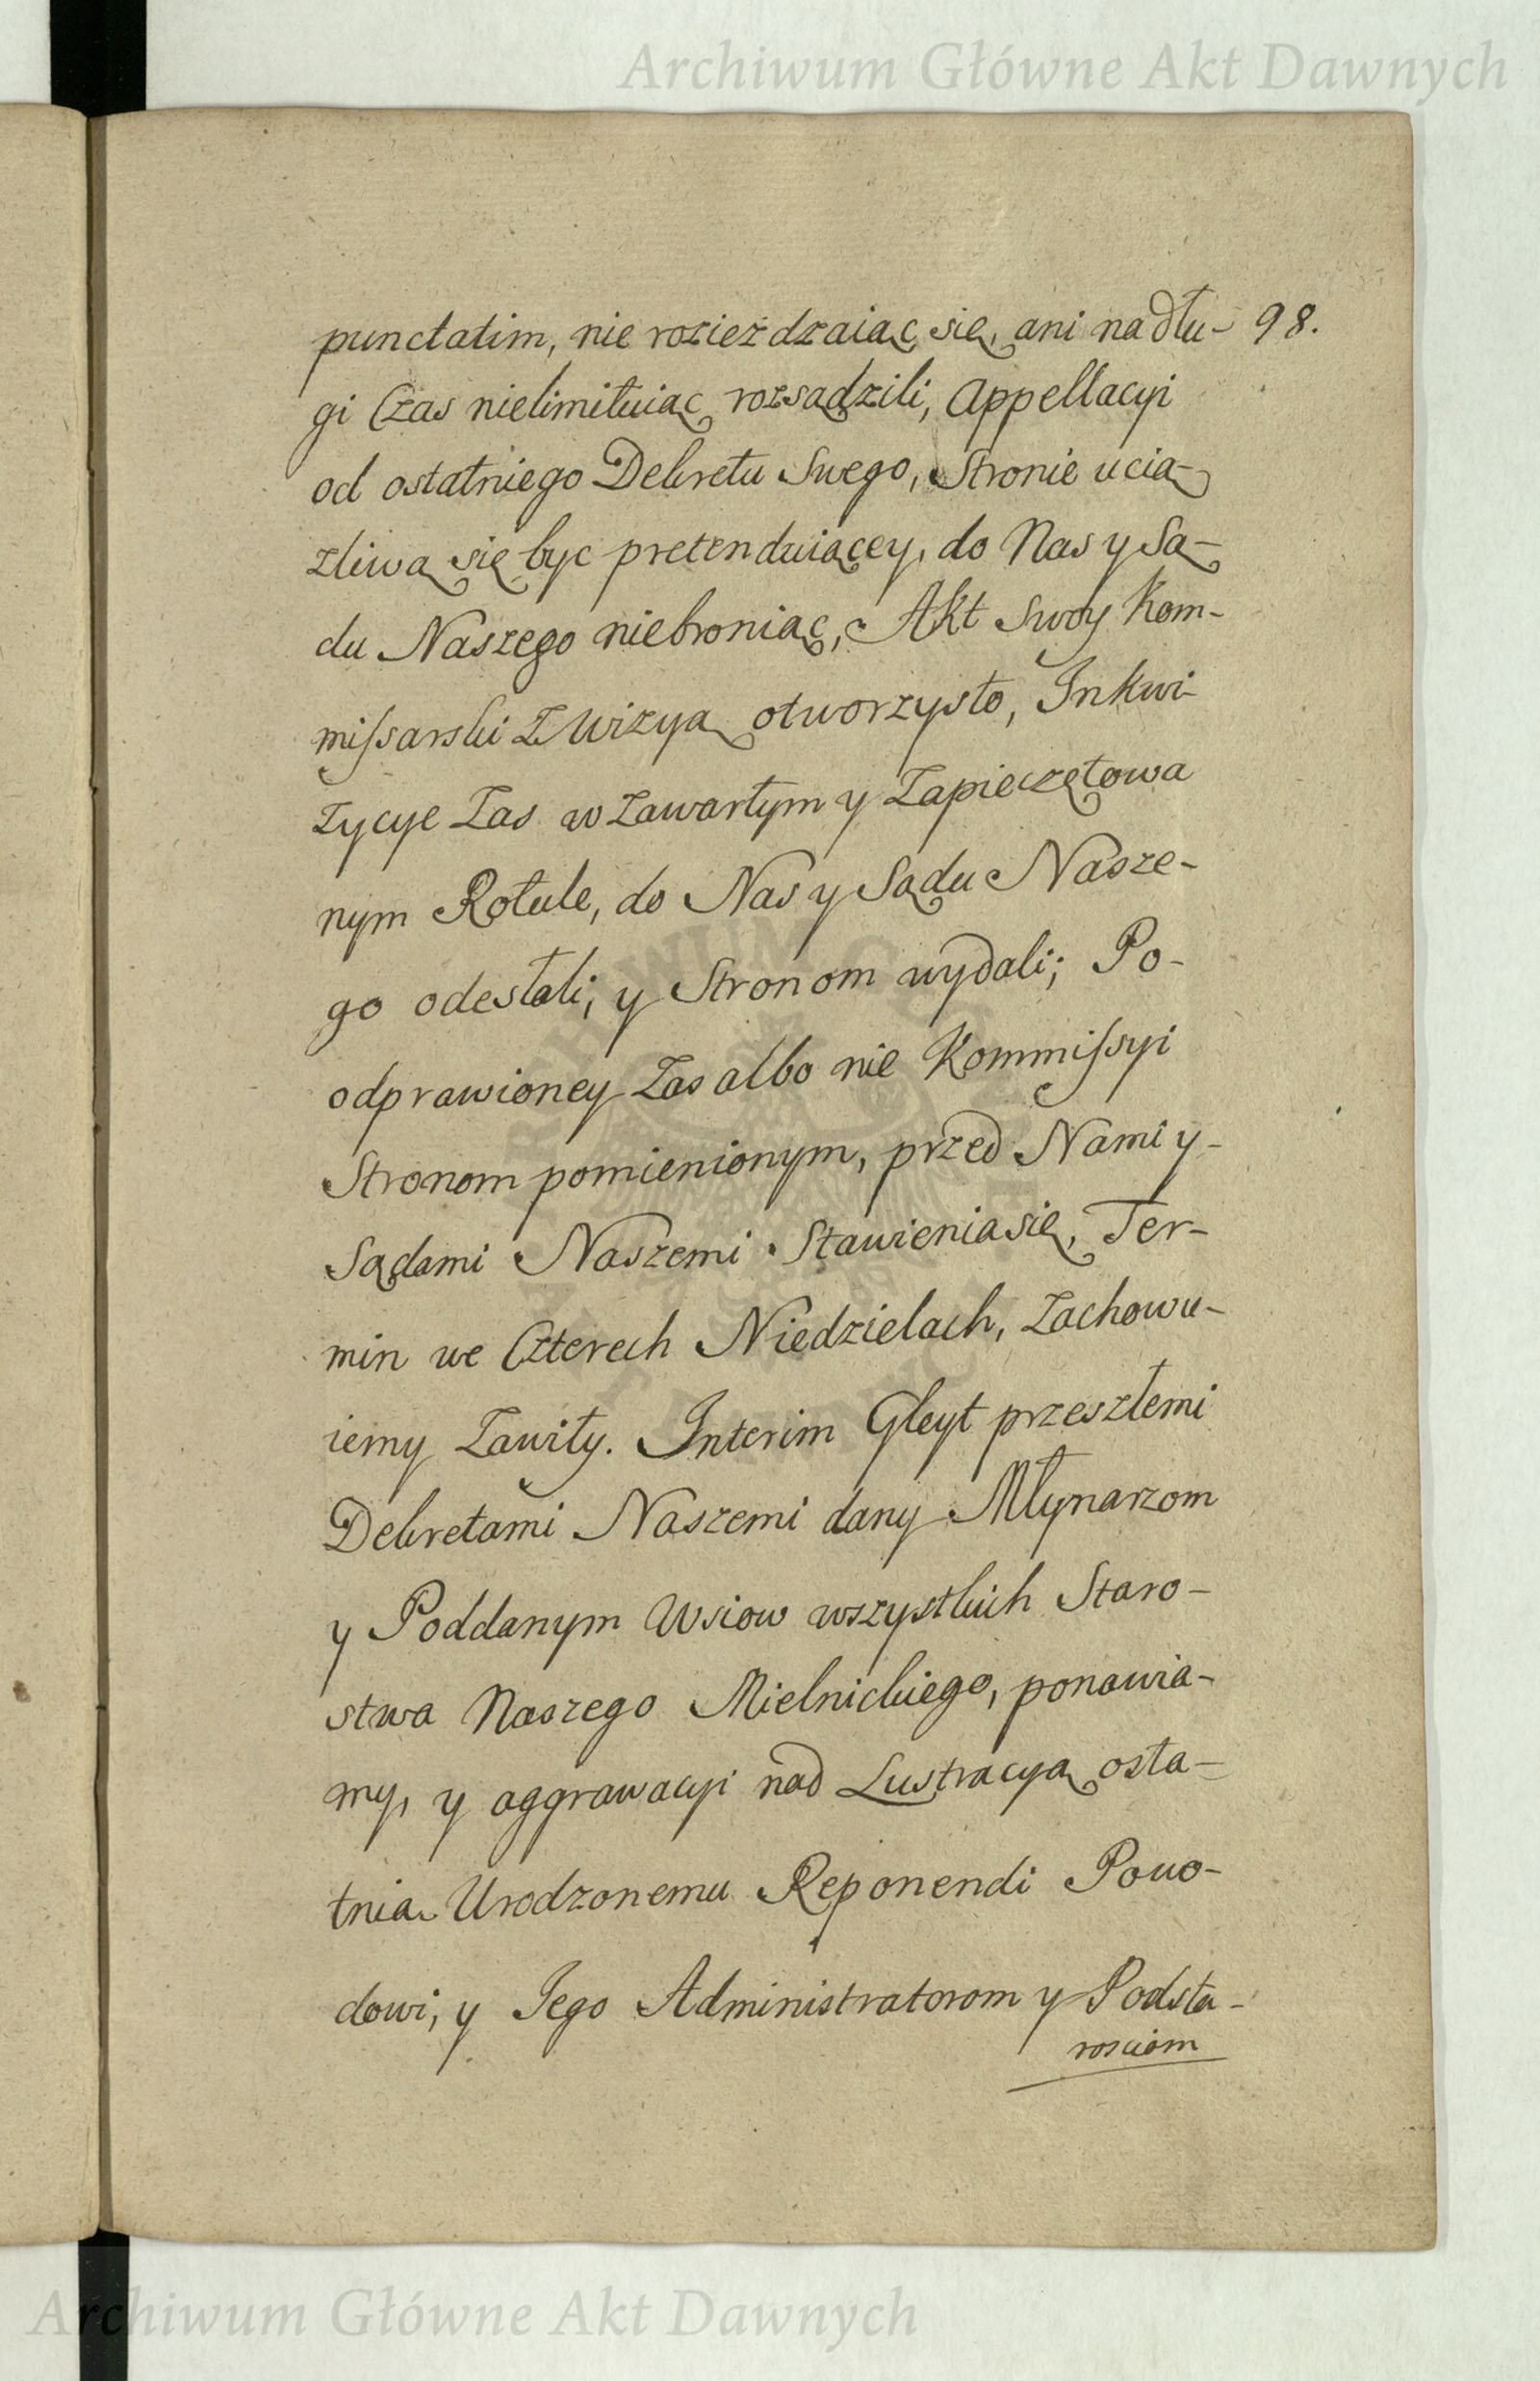 Archiwum Główne Akt Dawnych
punctatim, nie rozieżdzaiąc się, ani na dłu- 98.
gi Czas nielimituiąc rozsądzili, Appellacyi
od ostatniego Dekretu Swego, Stronie ucią-
zliwą się byc pretenduiącey, do Nas y Są-
du Naszego niebroniąc, Akt Swoy Kom-
missarski z Wizyą otworzysto, Inkwi-
zycye zas w zawartym y zapieczętowa
nym Rotule, do Nas y Sądu Nasze-
go odesłali, y Stronom wydali; Po-
odprawioney zas albo nie Kommissyi
Stronom pomienionym, przed Nami y-
Sądami Naszemi Stawienia się, Ter-
min we Czterech Niedzielach, zachowu-
iemy zawity. Interim Gleyt przeszłemi
Dekretami Naszemi dany Młynarzom
y Poddanym Wsiow wszystkich Staro-
stwa Naszego Mielnickiego, ponawia-
my, y aggrawacyi nad Lustracyą osta-
tnia Urodzonemu Reponendi Powo-
dowi, y Jego Administratorom y Podsta-
rosciom
Archiwum Główne Akt Dawnych